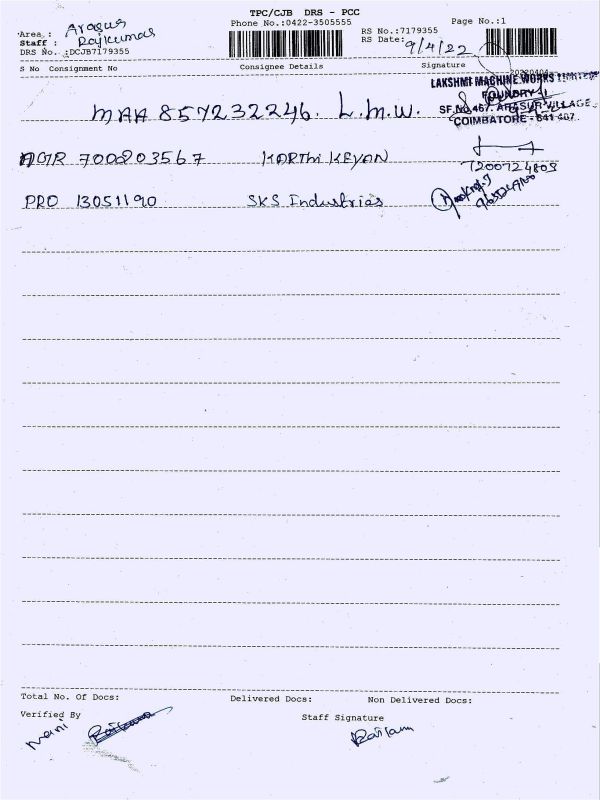 TPC/CJB DRS - PCC
Phone No.:0422-3505555
Page No.:1
Area : Arasur
Staff : Rajkumar
DRS No. :DCJB7179355
RS No.:7179355
RS Date: 9/4/22
S No Consignment No Consignee Details Signature
LAKSHMI MACHINE WORKS LIMITED
FOUNDRY
SF.NO.467. ARASUR VILLAGE
COIMBATORE - 641 407.
MAA 857232246. L.M.W.
AGR 700203567 KARTHI KEYAN
7200724809
PRO 13051190 SKS Industries
Total No. Of Docs: Delivered Docs: Non Delivered Docs:
Verified By Staff Signature
mani